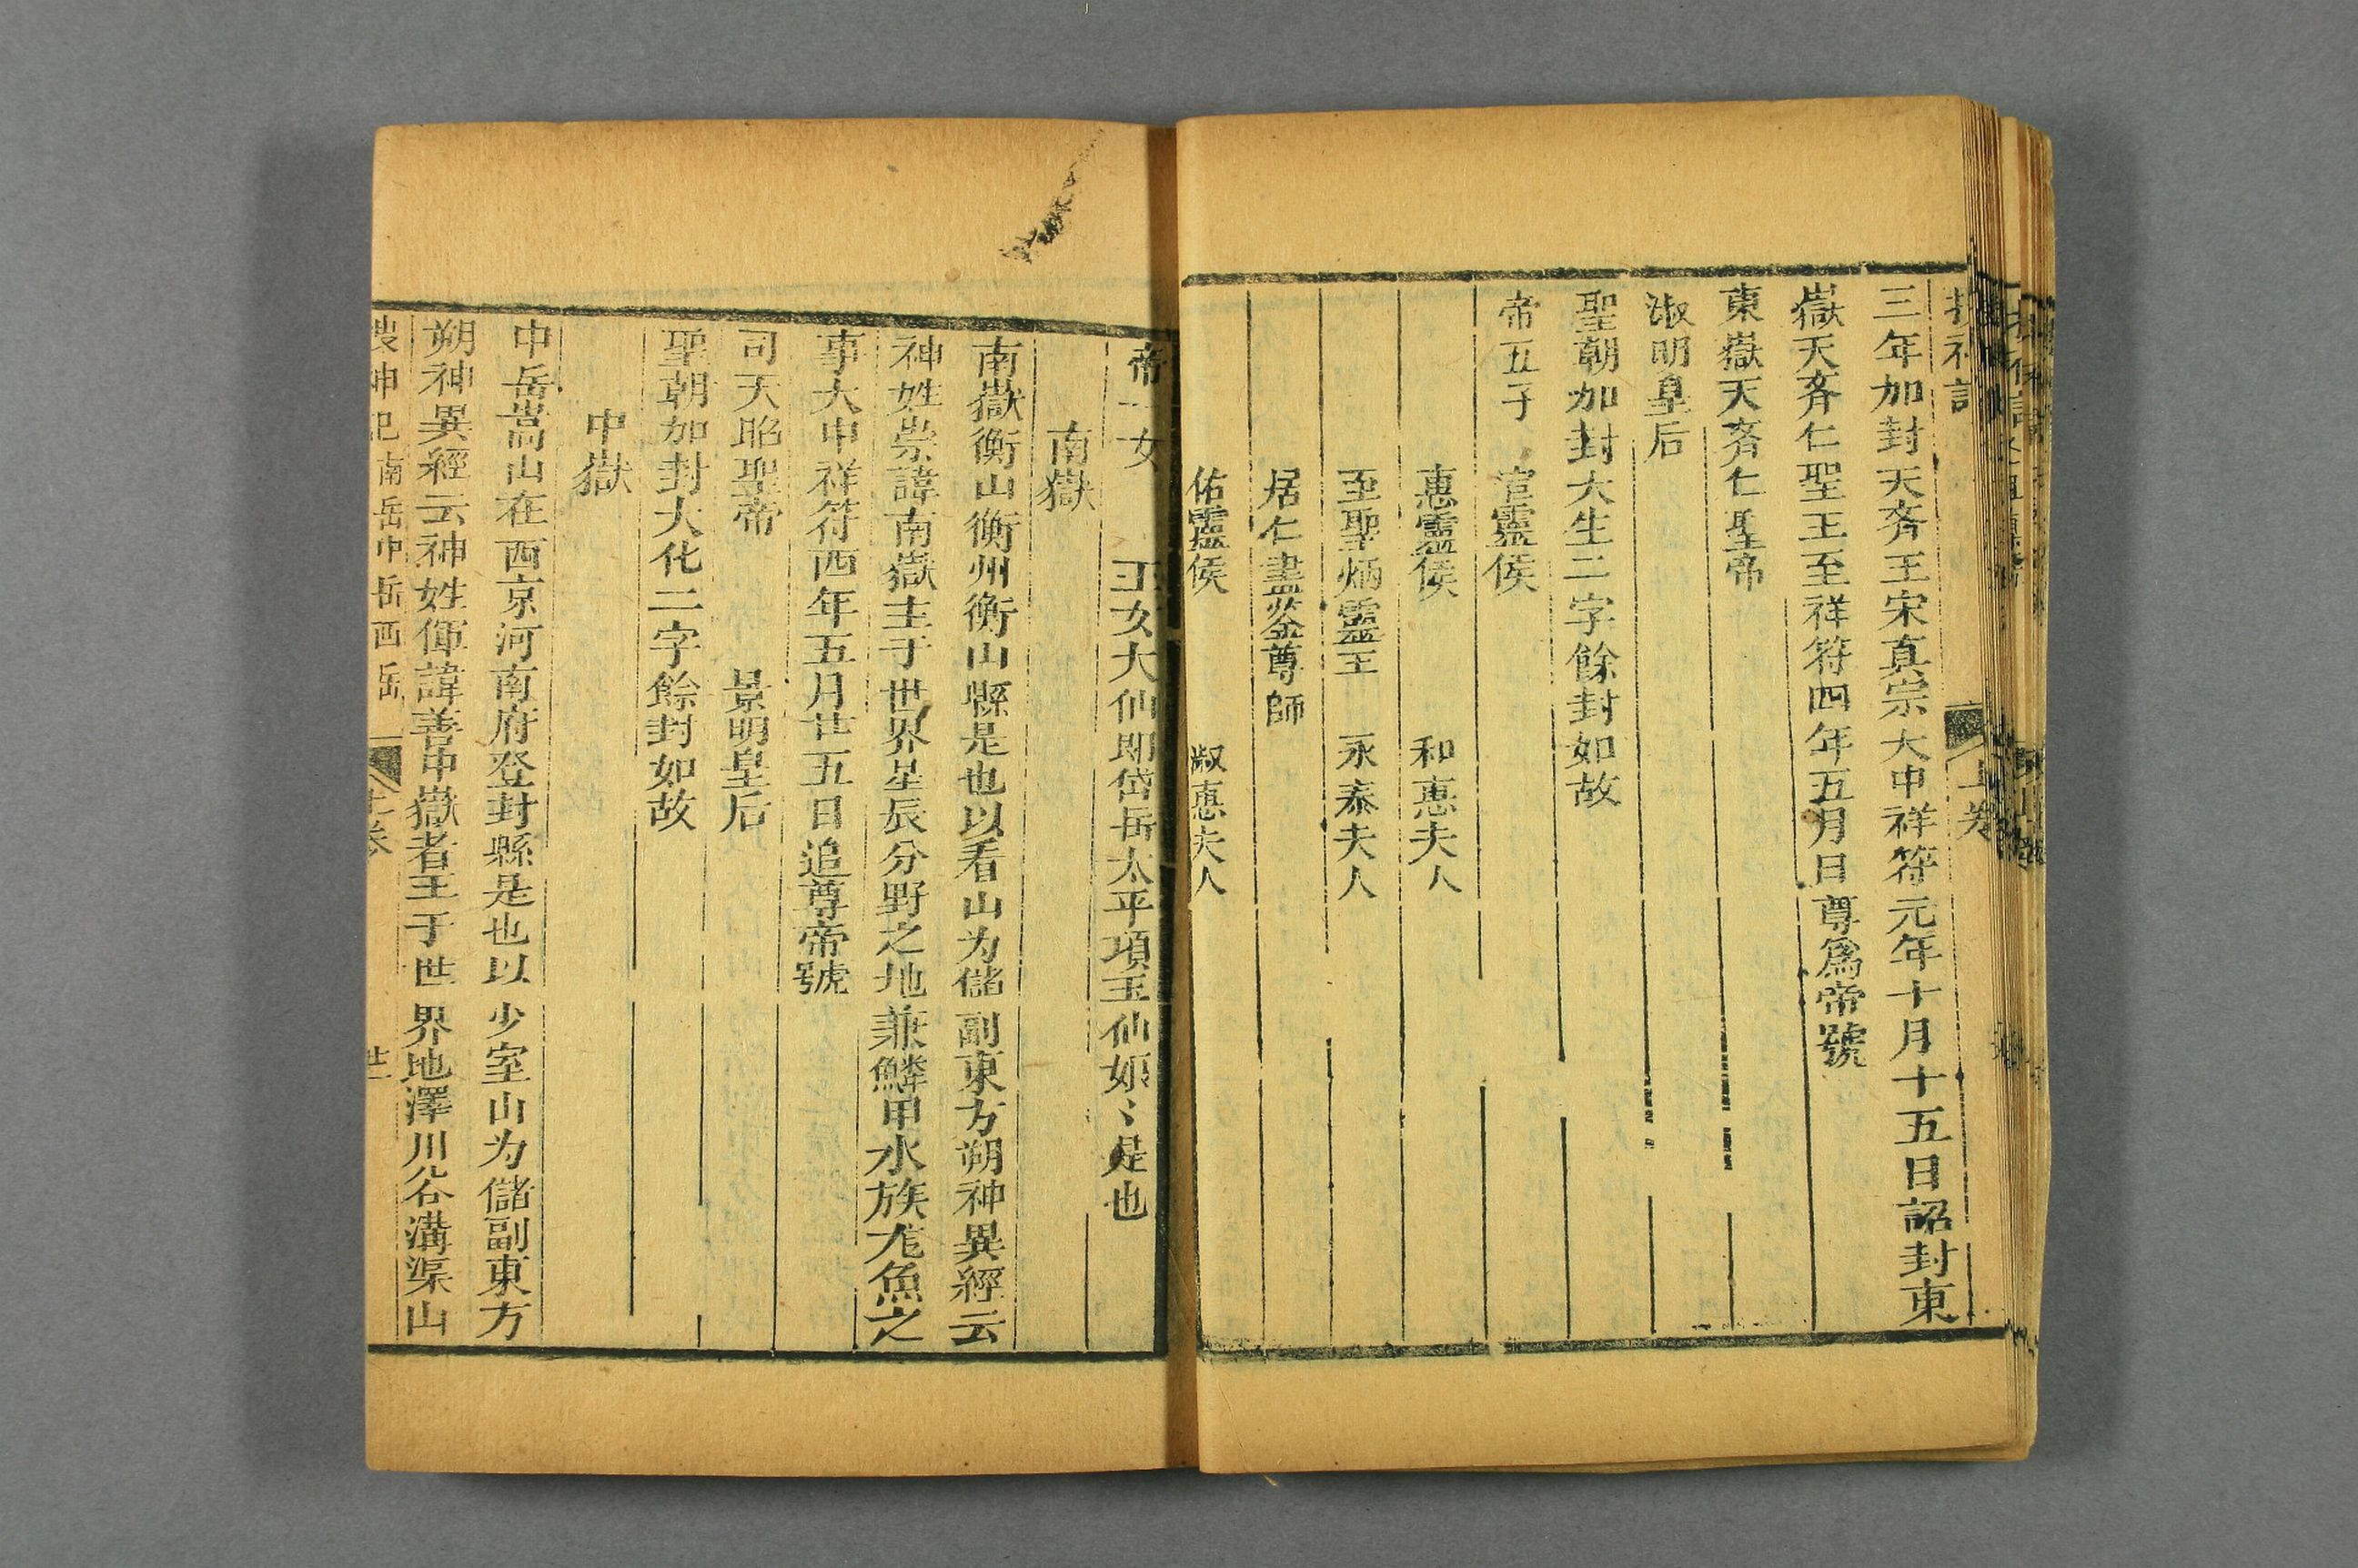 三年加封天齊王宋真宗大中祥符元年十月十五日詔封東
嶽天齊仁聖王至祥符四年五月日尊爲帝號
東嶽天齊仁聖帝
淑明皇后
聖朝加封大生二字餘封如故
帝五子 宣靈侯
惠靈侯 和惠夫人
至聖炳靈王 永泰夫人
居仁盡鉴尊師
佑靈侯 淑惠夫人
帝一女 玉女大仙即岱岳太平項玉仙娘〻是也
南嶽
南嶽衡山衡州衡山縣是也以看山为儲副東方朔神異經云
神姓崇諱南嶽主于世界星辰分野之地兼鱗甲水族尨魚之
事大中祥符四年五月廿五日追尊帝號
司天昭聖帝 景明皇后
聖朝加封大化二字餘封如故
中嶽
中岳嵩山在西京河南府登封縣是也以少室山为儲副東方
朔神異經云神姓惲諱善中嶽者主于世界地澤川谷溝渠山
搜神記 南岳中岳西岳 上卷